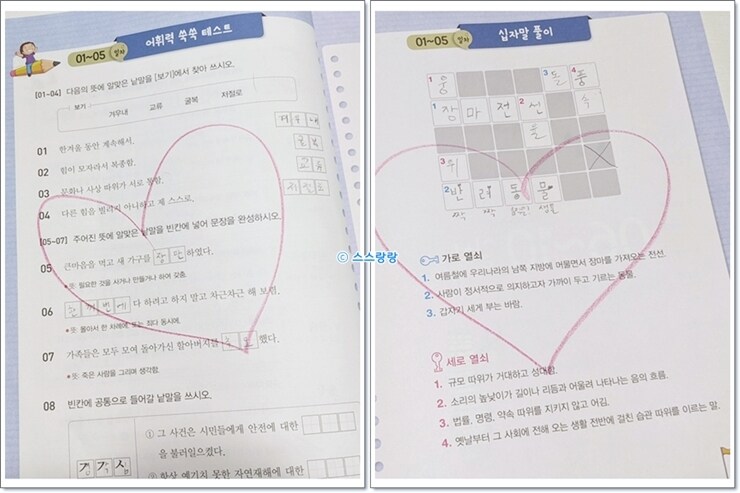 01~05 일차
어휘력 쑥쑥 테스트
[01~04] 다음의 뜻에 알맞은 낱말을 [보기]에서 찾아 쓰시오.
보기
겨우내 교류 굴복 저절로
01 한겨울 동안 계속해서. 겨우내
02 힘이 모자라서 복종함. 굴복
03 문화나 사상 따위가 서로 통함. 교류
04 다른 힘을 빌리지 아니하고 제 스스로. 저절로
[05~07] 주어진 뜻에 알맞은 낱말을 빈칸에 넣어 문장을 완성하시오.
05 큰마음을 먹고 새 가구를 장만하였다.
뜻: 필요한 것을 사거나 만들거나 하여 갖춤.
06 한꺼번에 다 하려고 하지 말고 차근차근 해 보렴.
뜻: 몰아서 한 차례에. 또는 죄다 동시에.
07 가족들은 모두 모여 돌아가신 할아버지를 했다.
뜻: 죽은 사람을 그리며 생각함.
08 빈칸에 공통으로 들어갈 낱말을 쓰시오.
① 그 사건은 시민들에게 안전에 대한
을 불러일으켰다.
경각심
② 항상 예기치 못한 자연재해에 대한
© 스스랑랑
01~05 일차
십자말 풀이
1 웅 3 돌 4 풍
1 장 마 전 2 선 수
율
3 위
2 반 려 동 물
짝 짝
가로 열쇠
1. 여름철에 우리나라의 남쪽 지방에 머물면서 장마를 가져오는 전선.
2. 사람이 정서적으로 의지하고자 가까이 두고 기르는 동물.
3. 갑자기 세게 부는 바람.
세로 열쇠
1. 규모 따위가 거대하고 성대함.
2. 소리의 높낮이가 길이나 리듬과 어울려 나타나는 음의 흐름.
3. 법률, 명령, 약속 따위를 지키지 않고 어김.
4. 옛날부터 그 사회에 전해 오는 생활 전반에 걸친 습관 따위를 이르는 말.